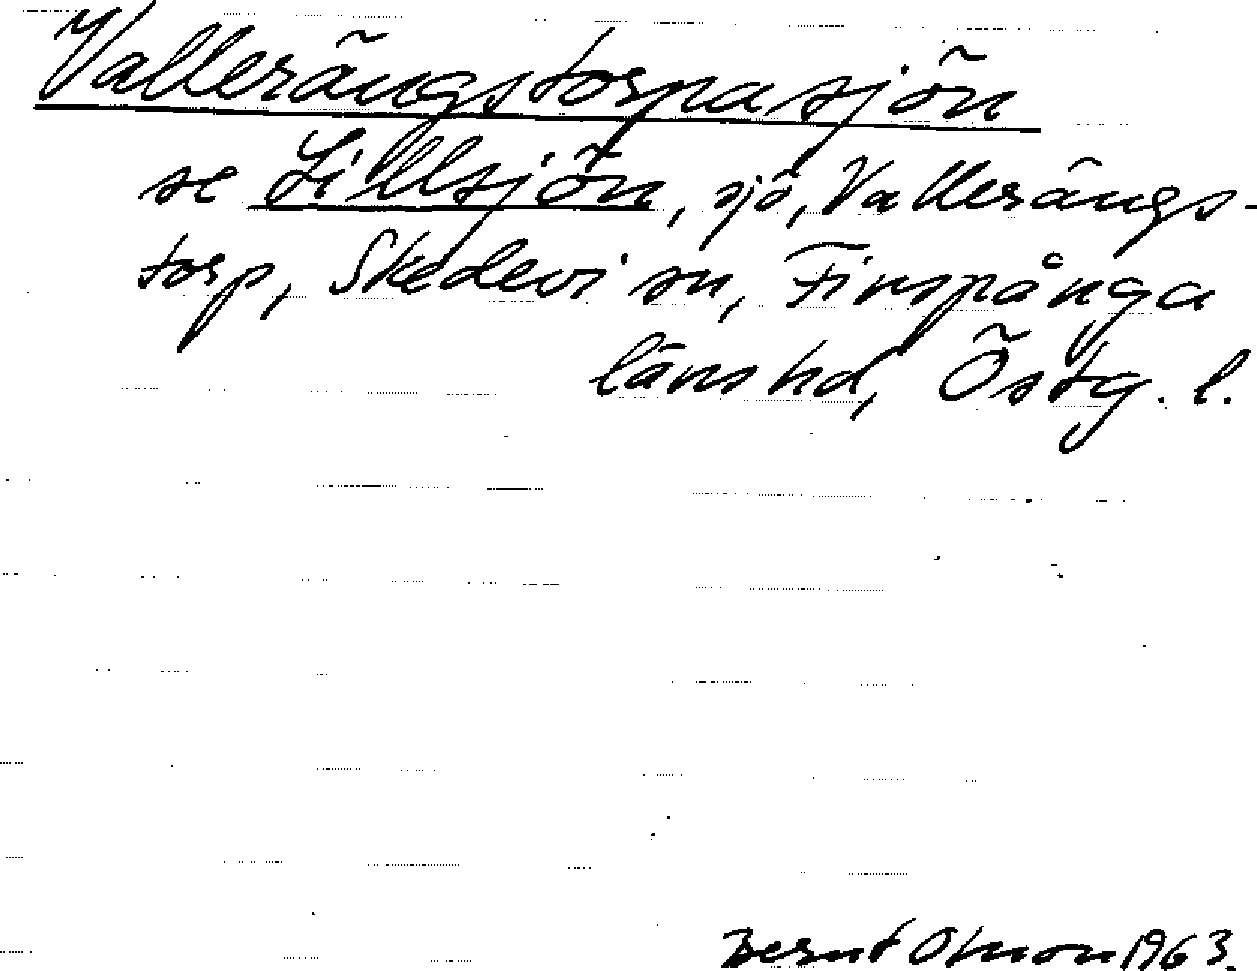 Vallerängstorpasjön
se Lillsjön, sjö, Vallerängs-
torp, Skedevi sn, Finspånga
länshd, Östg. l.
Bernt Olsson 1963.